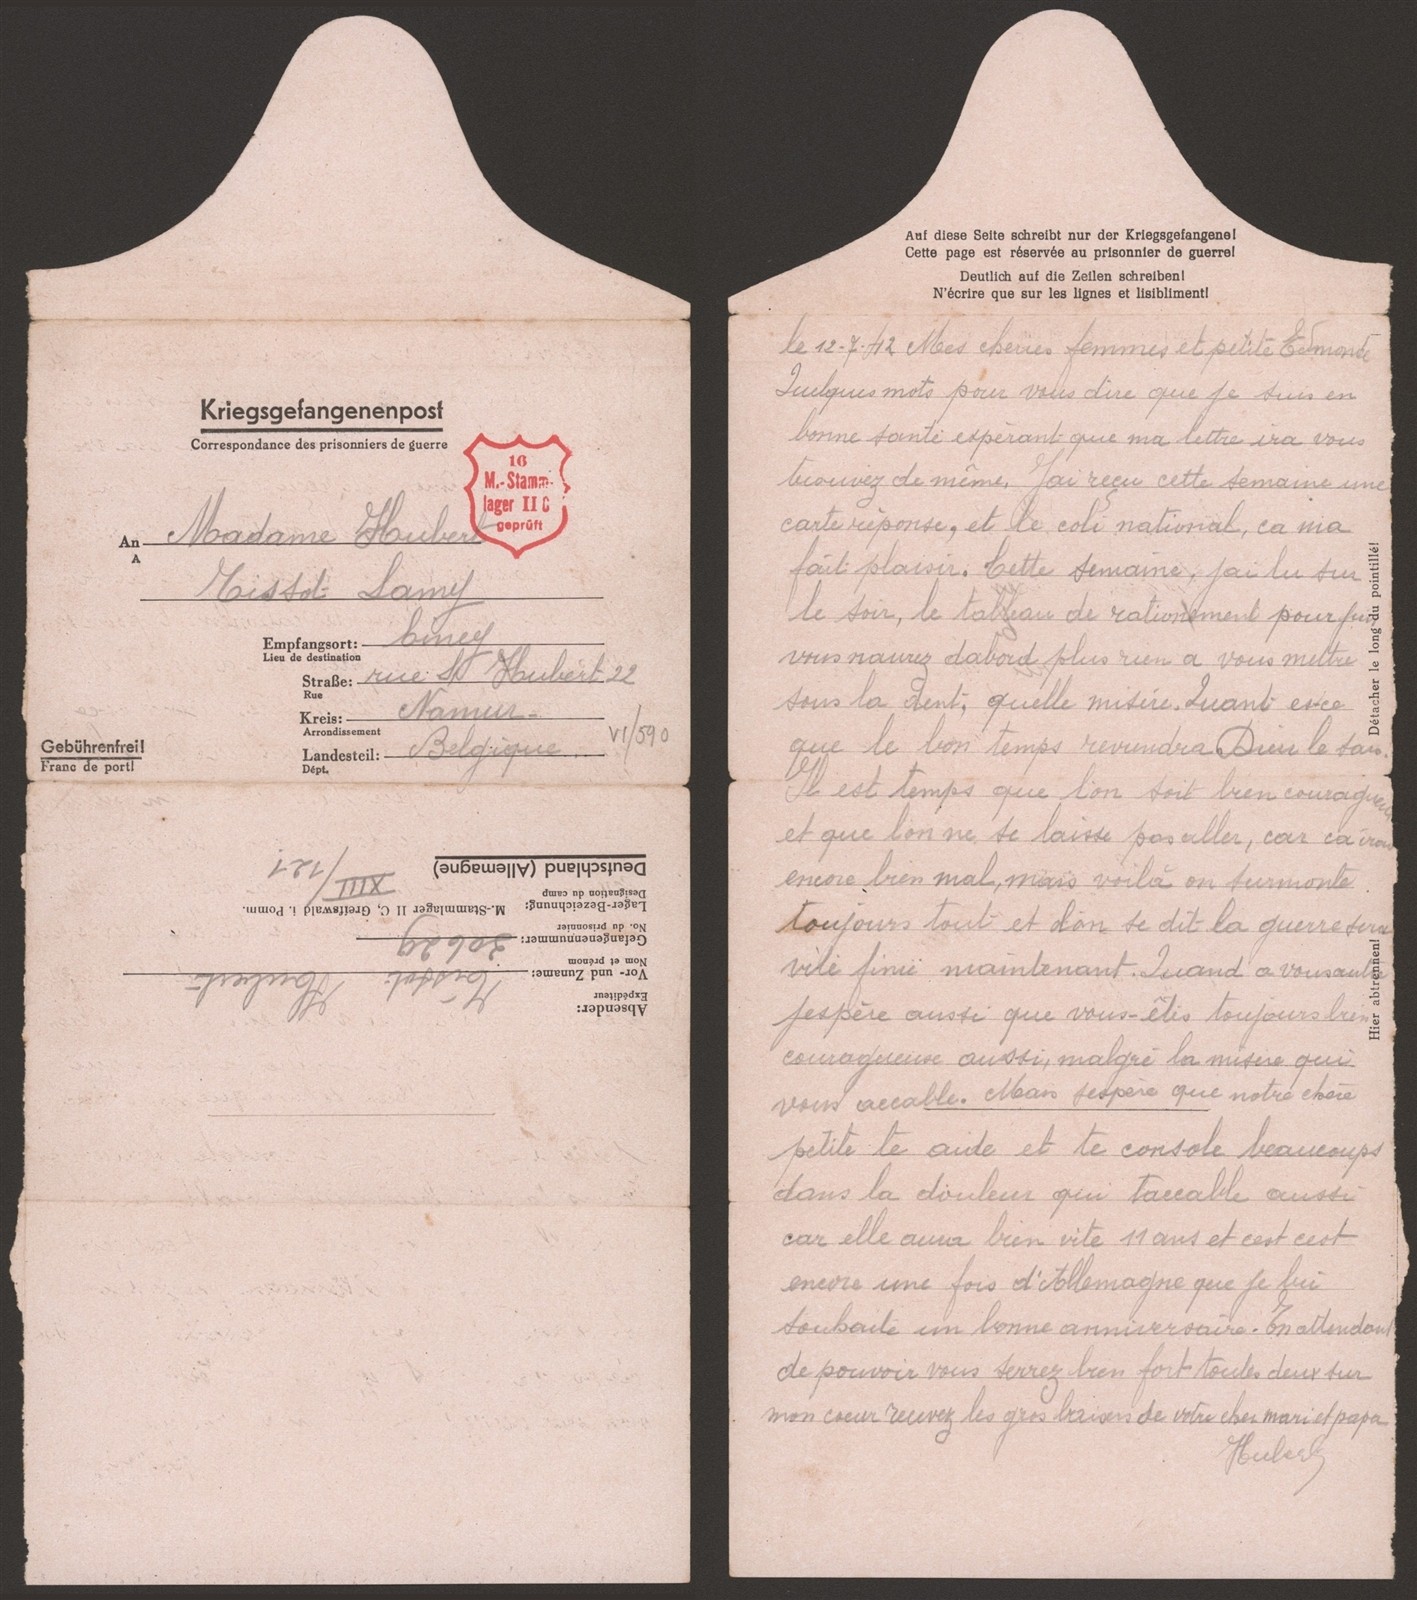 Kriegsgefangenenpost
Correspondance des prisonniers de guerre
16
M.-Stamm-
lager II C
geprüft
An Madame Hubert
A
Tissot Lamy
Empfangsort: Ciney
Lieu de destination
Straße: rue St Hubert 22
Rue
Kreis: Namur-
Arrondissement
Landesteil: Belgique
Dépt.
VI/590
Gebührenfrei!
Franc de port!
Absender:
Expéditeur
Vor- und Zuname: Tissot Hubert
Nom et prénom
Gefangenennummer: 30629
No. du prisonnier
Lager-Bezeichnung: M.-Stammlager II C, Greifswald i. Pomm.
Désignation du camp
XIII/121
Deutschland (Allemagne)
Auf diese Seite schreibt nur der Kriegsgefangene!
Cette page est réservée au prisonnier de guerre!
Deutlich auf die Zeilen schreiben!
N'écrire que sur les lignes et lisiblement!
le 12-7-42 Mes cheries femmes et petite Edmonde
Quelques mots pour vous dire que je suis en
bonne santé espérant que ma lettre ira vous
trouvez de même. J'ai reçu cette semaine une
carte réponse, et le coli national, ca ma
fait plaisir. Cette semaine, jai lu sur
le soir, le tableau de rationement pour
vous naurez dabord plus rien a vous mettre
sous la dent, quelle misère. Quant es-ce
que le bon temps reviendra Dieu le sait.
Il est temps que l'on soit bien couragueux
et que l'on ne se laisse pas aller, car ca irai
encore bien mal, mais voilà on surmonte
toujours tout et l'on se dit la guerre sera
vite finie maintenant. Quand a vous autre
jespère aussi que vous-êtes toujours bien
couragueuse aussi, malgré la misère qui
vous accable. Mais jespère que notre chère
petite te aide et te console beaucoups
dans la douleur qui taccable aussi
car elle aura bien vite 11 ans et cest cest
encore une fois d'Allemagne que je lui
souhaite un bonne anniversaire. En attendant
de pouvoir vous serrez bien fort toutes deux sur
mon coeur recevez les gros baisers de votre cher mari et papa
Hubert
Hier abtrennen! Détacher le long du pointillé!